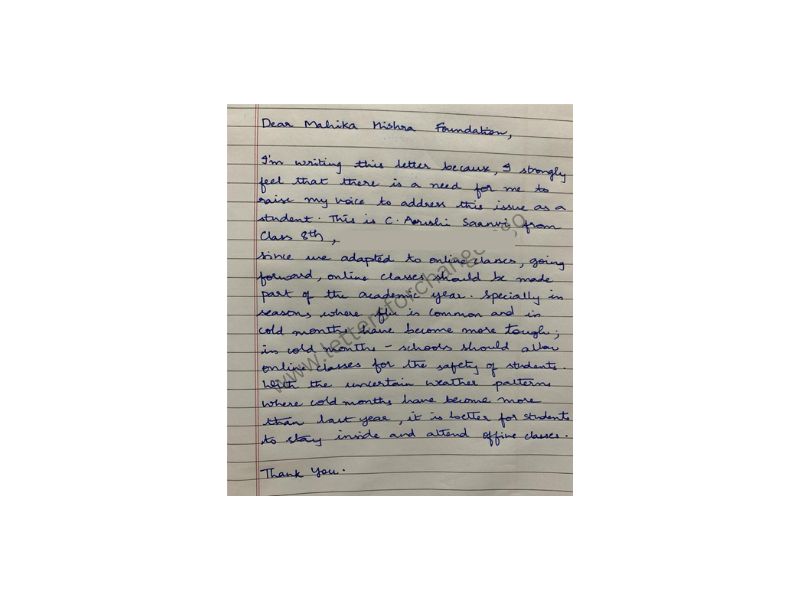 Dear Mahika Mishra Foundation,
I'm writing this letter because, I strongly
feel that there is a need for me to
raise my voice to address this issue as a
student. This is C. Aarushi Saanvi, from
Class 8th,
Since we adapted to online classes, going
forward, online classes should be made
part of the academic year. Specially in
seasons where flu is common and in
cold months have become more tough;
in cold months - schools should allow
online classes for the safety of students.
With the uncertain weather patterns
where cold months have become more
than last year, it is better for students
to stay inside and attend offine classes.
Thank You.
www.lettersforchange